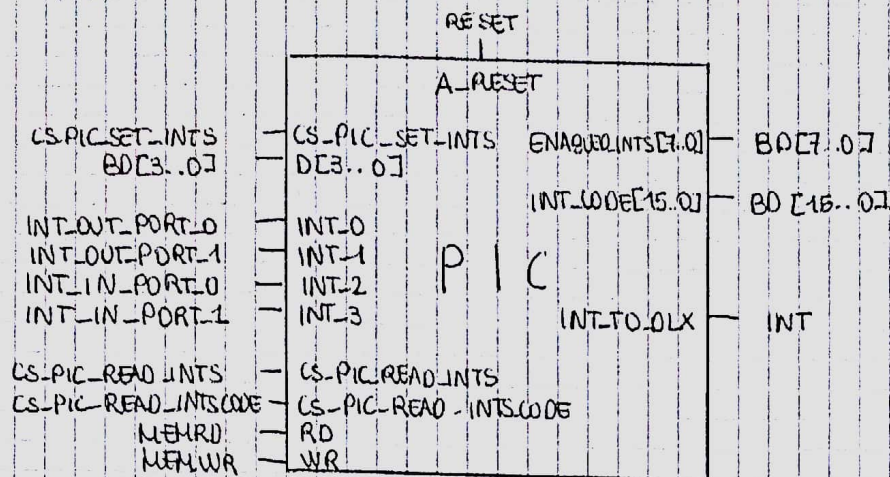 RESET
A_RESET
CS_PIC_SET_INTS CS_PIC_SET_INTS ENABLED_INTS[7..0] BD[7..0]
BD[3..0] D[3..0]
INT_CODE[15..0] BD[15..0]
INT_OUT_PORT_0 INT_0
INT_OUT_PORT_1 INT_1
INT_IN_PORT_0 INT_2
INT_IN_PORT_1 INT_3
PIC
INT_TO_DLX INT
CS_PIC_READ_INTS CS_PIC_READ_INTS
CS_PIC_READ_INTSCODE CS_PIC_READ_INTSCODE
MEMRD RD
MEMWR WR